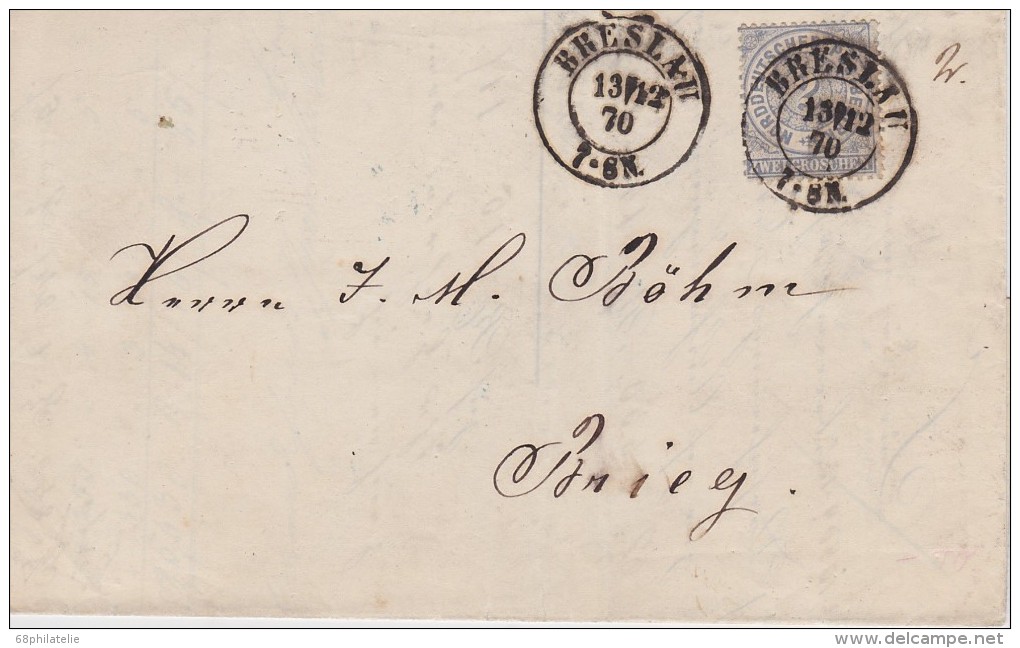 BRESLAU
13 12
70
7-8N.
NORDDEUTSCHER
ZWEI GROSCHEN
BRESLAU
13 12
70
7-8N.
2.
Herrn J. M. Böhm
Brieg.
68philatelie
www.delcampe.net